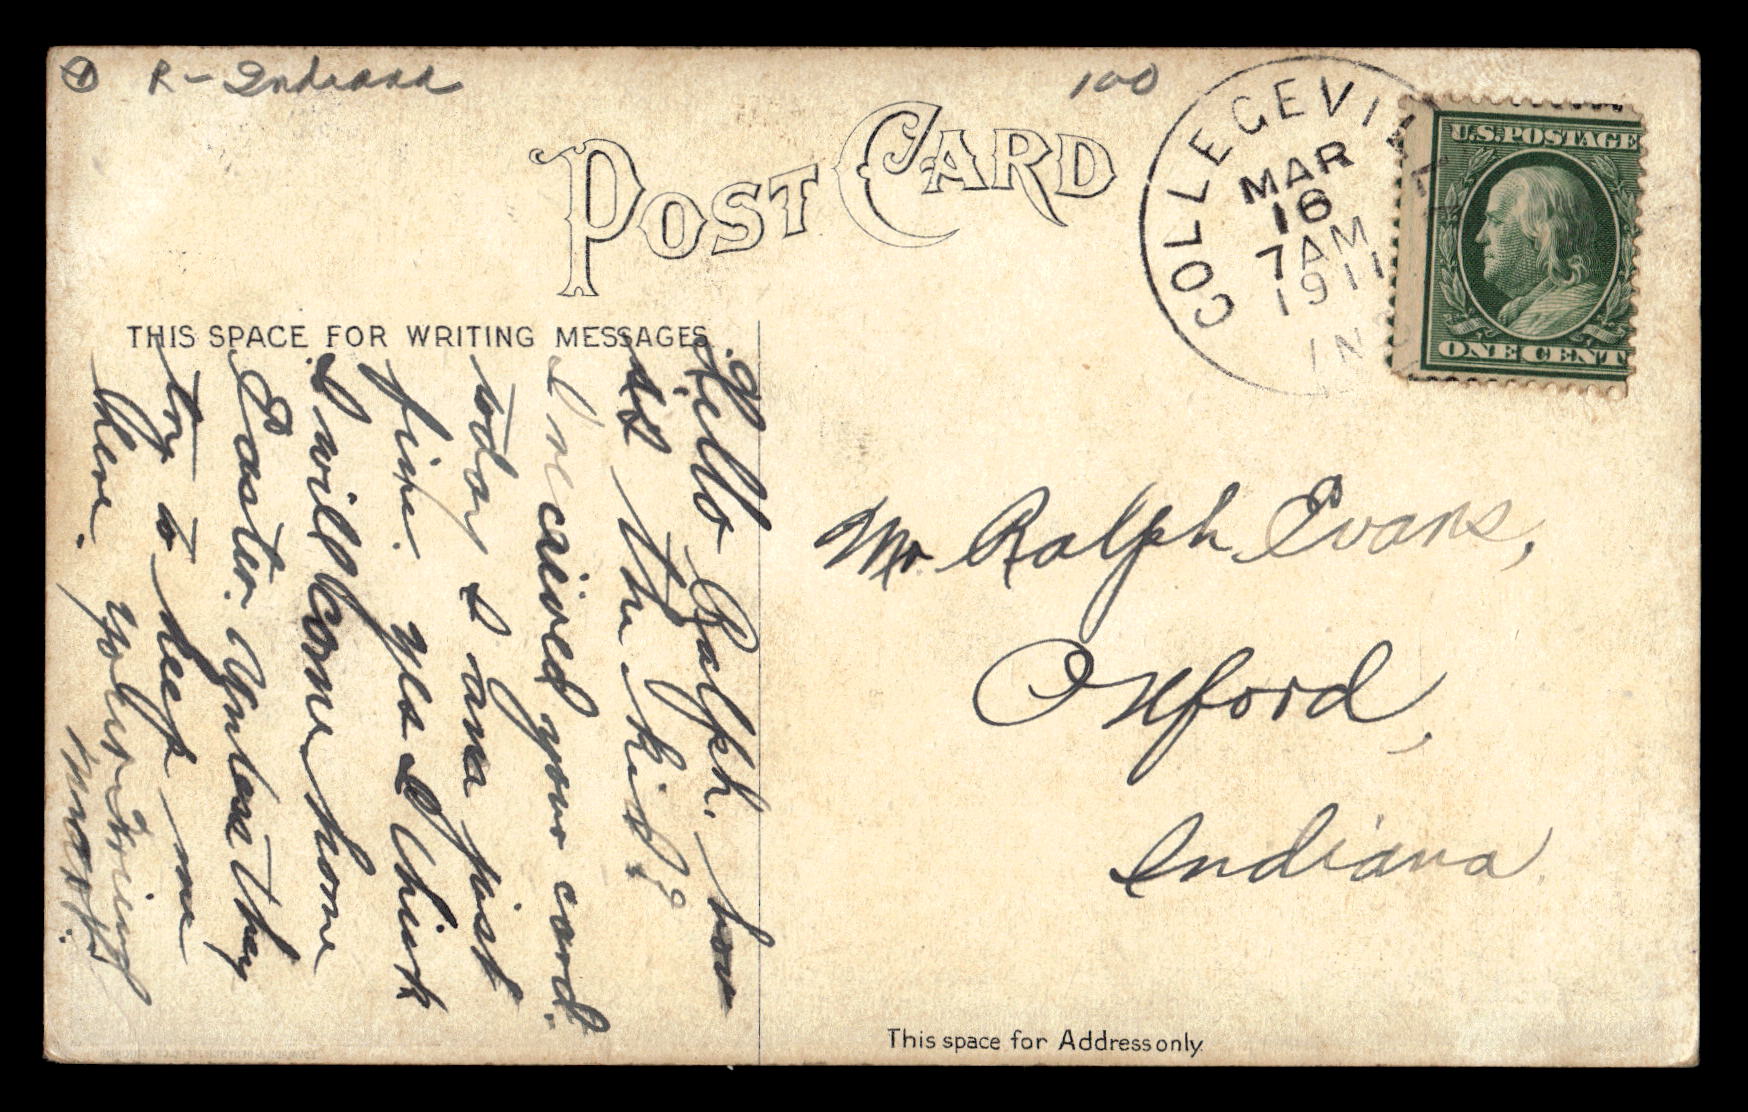 R- Indiana
100
POST CARD
COLLEGEVILLE
MAR
16
7 AM
1911
IND
U.S. POSTAGE
ONE CENT
THIS SPACE FOR WRITING MESSAGES.
Hello Ralph. how
is the kid?
I recaived your card.
today I am just
fine. yes I think
I will come home
Easter. Unless they
try to keep me
there. your Friend
Mr Ralph Evans,
Oxford,
Indiana.
This space for Address only.